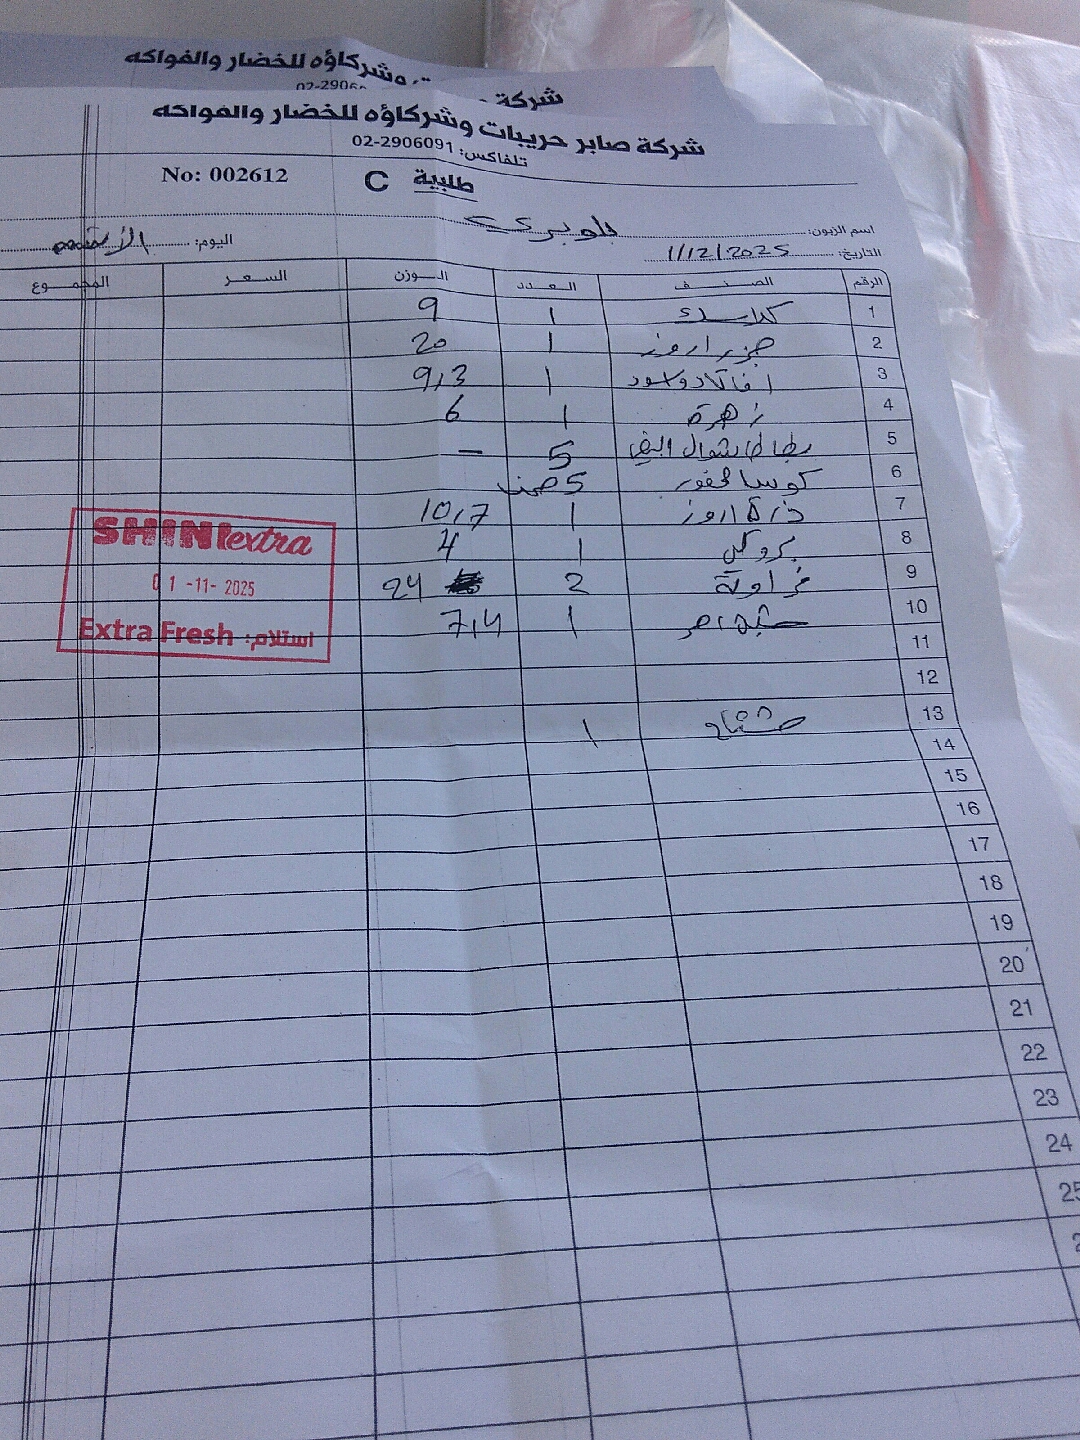 وشركاؤه للخضار والفواكه
شركة
شركة صابر حريبات وشركاؤه للخضار والفواكه
تلفاكس: 02-2906091
No: 002612
طلبية C
اسم الزبون: بلوبري
اليوم: الأثنين
التاريخ: 1/12/2025
الرقم الصنف العدد الوزن السعر المجموع
1 1 9
2 جزر اروز 1 20
3 1 9,3
4 زهرة 1 6
5 بطاطا شوال ابيض 5 -
6 كوسا محفور 5 صحن
7 ذرة اروز 1 10,7
8 بروكلي 1 4
9 فراولة 2 24
10 1 7,4
11
12
13 مشتاح 1
14
15
16
17
18
19
20
21
22
23
24
25
SHINI extra
01-11-2025
Extra Fresh استلام: